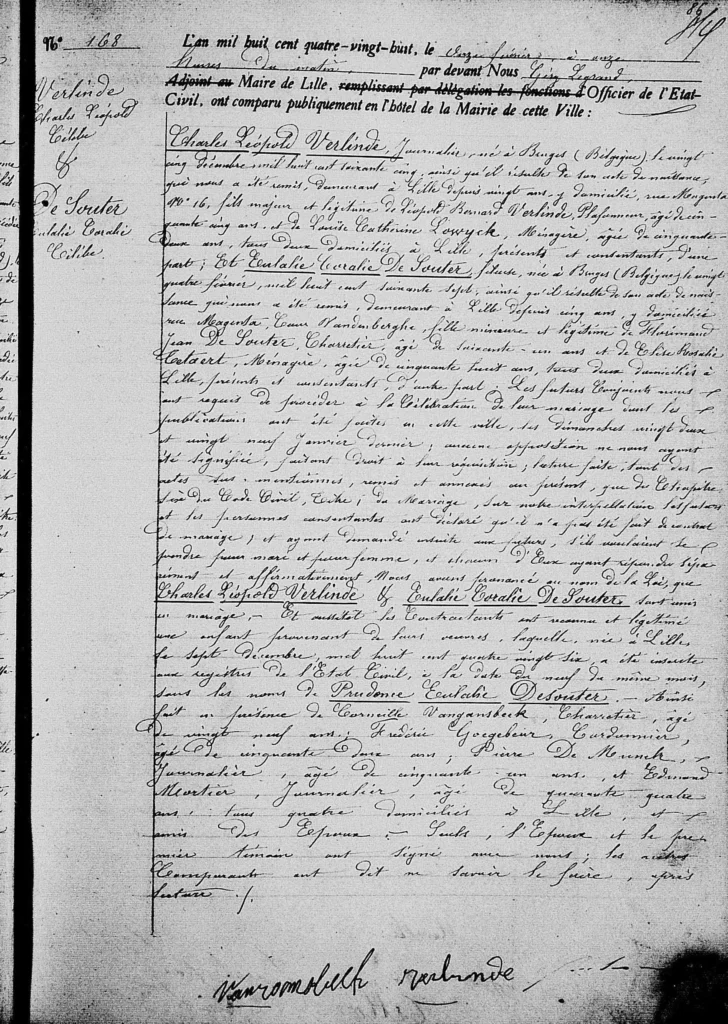 86
N° 168
Verlinde
Charles Léopold
Célibe
&
De Souter
Eulalie Coralie
Célibe
L'an mil huit cent quatre-vingt-huit, le onze février, à onze
heures du matin, par devant Nous Géry Legrand
Adjoint au Maire de Lille, remplissant par délégation les fonctions d'Officier de l'Etat-
Civil, ont comparu publiquement en l'hôtel de la Mairie de cette Ville :
Charles Léopold Verlinde, Journalier, né à Bruges (Belgique) le vingt
cinq décembre mil huit cent soixante cinq, ainsi qu'il résulte de son acte de naissance,
qui nous a été remis, demeurant à Lille depuis vingt ans, y domicilié, rue Magenta
N° 16, fils majeur et légitime de Léopold Bernard Verlinde, Plafonneur, âgé de cin-
quante cinq ans, et de Louise Catherine Lowyck, Ménagère, âgée de cinquante-
deux ans, tous deux domiciliés à Lille, présents et consentants, d'une
part ; Et Eulalie Coralie De Souter, fileuse, née à Bruges (Belgique) le vingt
quatre février, mil huit cent soixante sept, ainsi qu'il résulte de son acte de nais-
sance qui nous a été remis, demeurant à Lille depuis cinq ans, y domiciliée
rue Magenta, Cour Vandenberghe, fille mineure et légitime de
Jean De Souter, Charretier, âgé de soixante-un ans et de Elise Rosalie
, Ménagère, âgée de cinquante huit ans, tous deux domiciliés à
Lille, présents et consentants, d'autre part ; Les futurs Conjoints nous
ont requis de procéder à la Célébration de leur mariage dont les
publications ont été faites en cette ville, les dimanches vingt deux
et vingt neuf Janvier dernier ; aucune opposition ne nous ayant
été signifiée, faisant droit à leur réquisition ; lecture faite, tant des
actes sus-mentionnés, remis et annexés au présent, que du Chapitre
six du Code Civil, titre : du Mariage, sur notre interpellation les futurs
et les personnes consentantes ont déclaré qu'il n'a pas été fait de contrat
de mariage ; et ayant demandé ensuite aux futurs, s'ils voulaient se
prendre pour mari et pour femme, et chacun d'Eux ayant répondu sépa-
rément et affirmativement, Nous avons prononcé au nom de la Loi, que
Charles Léopold Verlinde & Eulalie Coralie De Souter sont unis
en mariage. - Et aussitôt les Contractants ont reconnu et légitimé
une enfant provenant de leurs oeuvres, laquelle, née à Lille
le sept décembre, mil huit cent quatre vingt six, a été inscrite
aux registres de l'Etat Civil, à la date du neuf du même mois,
sous les noms de Prudence Eulalie Desouter. - Ainsi
fait en présence de Corneille Vangansbeck, Charretier, âgé
de vingt neuf ans ; Frédéric Goegebeur, Cordonnier,
âgé de cinquante deux ans ; Pierre De Munck,
Journalier, âgé de cinquante-un ans, et Edmond
Mortier, Journalier, âgé de quarante quatre
ans : tous quatre domiciliés à Lille, et
amis des Epoux. - Seuls, l'Epoux et le pre-
mier témoin ont signé avec nous ; les autres
Comparants ont dit ne savoir le faire, après
lecture ./.
verlinde